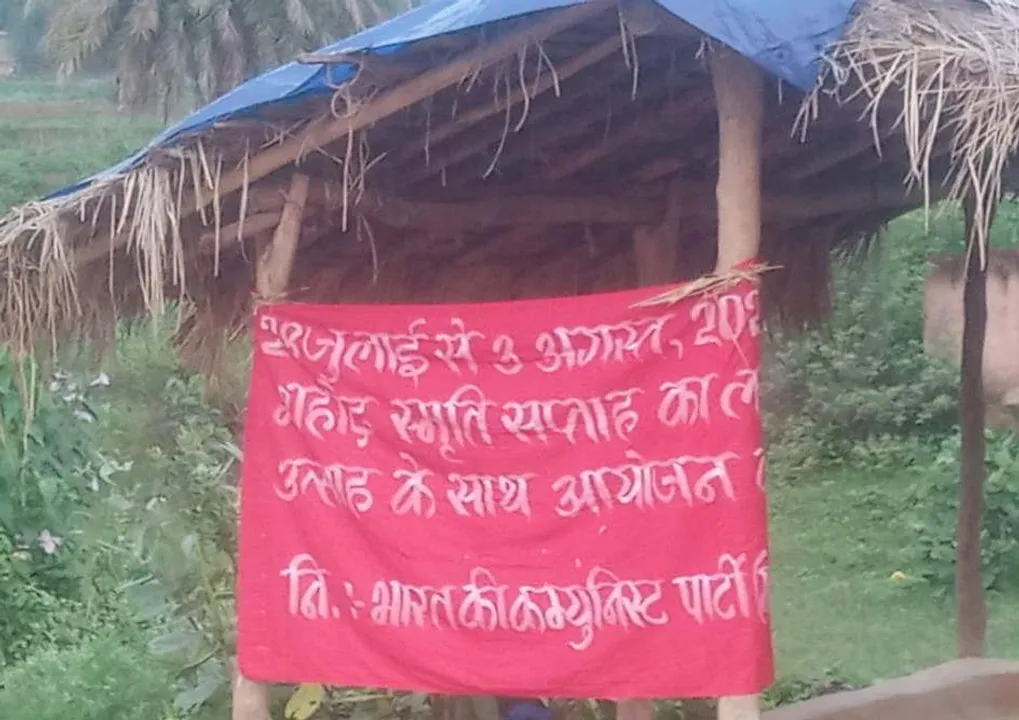 २८ जुलाई से ३ अगस्त, २०२
शहीद स्मृति सप्ताह का
उत्साह के साथ आयोजन
नि.:- भारत की कम्युनिस्ट पार्टी